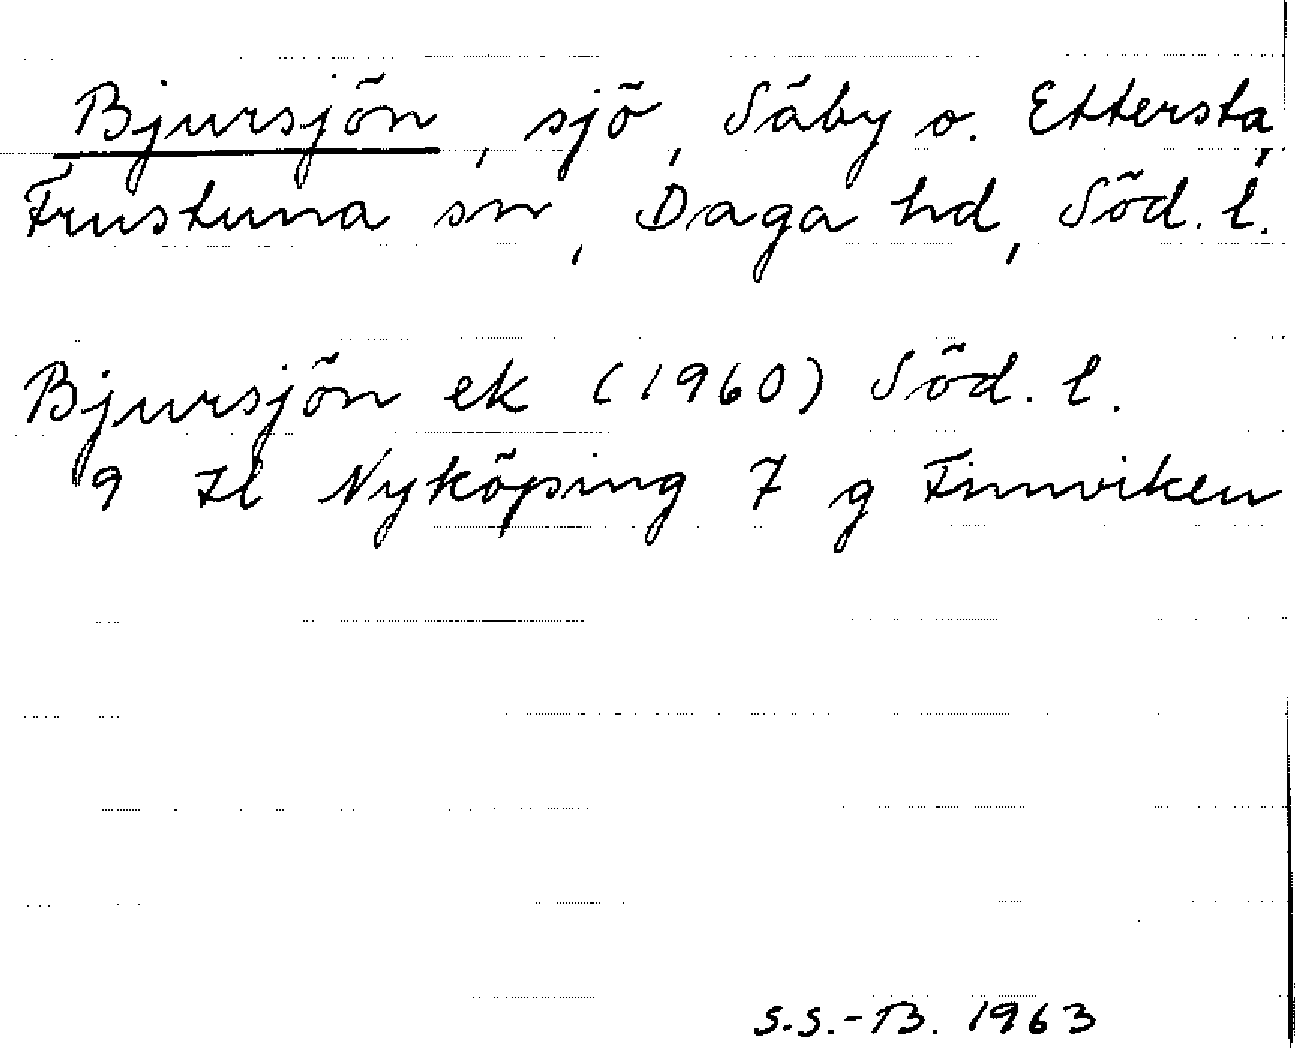 Bjursjön, sjö, Säby o. Ettersta,
Frustuna sn, Daga hd, Söd. l.
Bjursjön ek (1960) Söd. l.
9 Il Nyköping 7 g Finnviken
S.S.-B. 1963